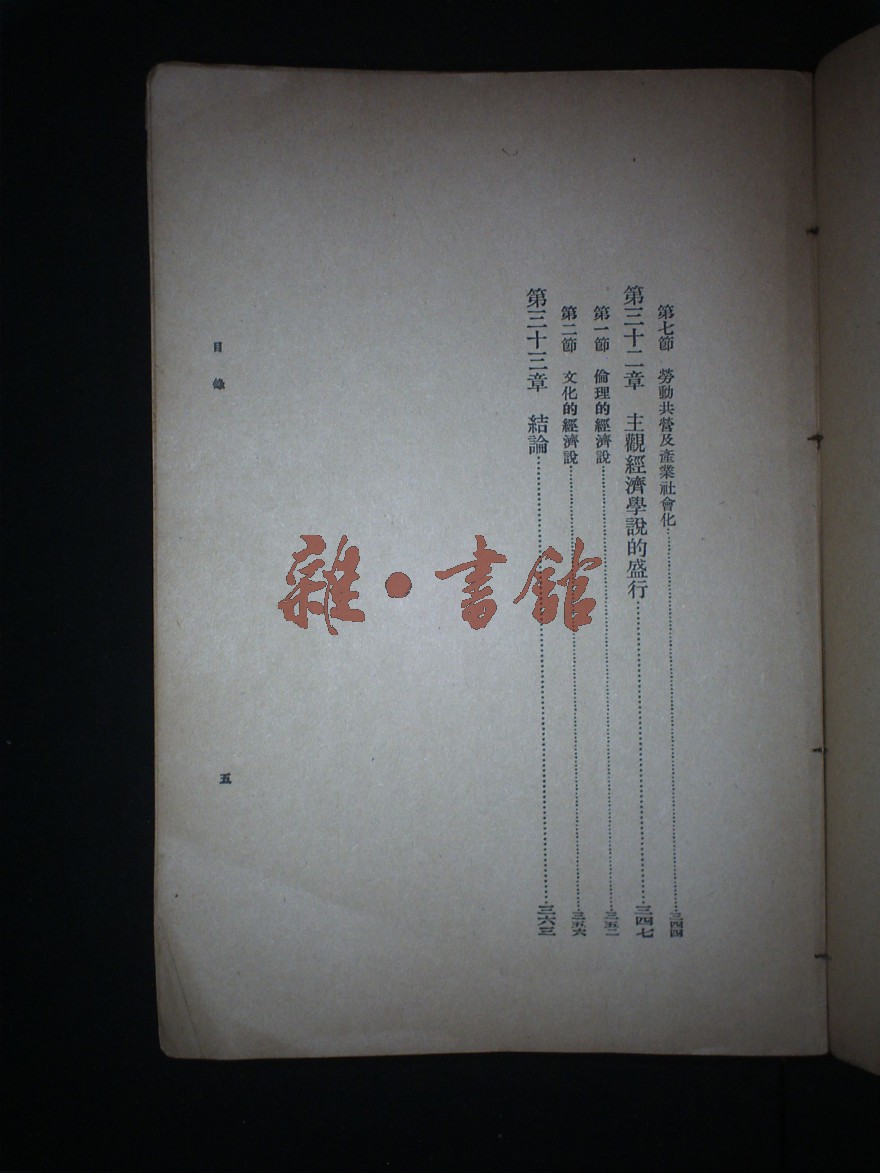 第七節　勞動共營及產業社會化……三四四
第三十二章　主觀經濟學說的盛行……三四七
第一節　倫理的經濟說……三五二
第二節　文化的經濟說……三五六
第三十三章　結論……三六三
目錄
五
雜·書館